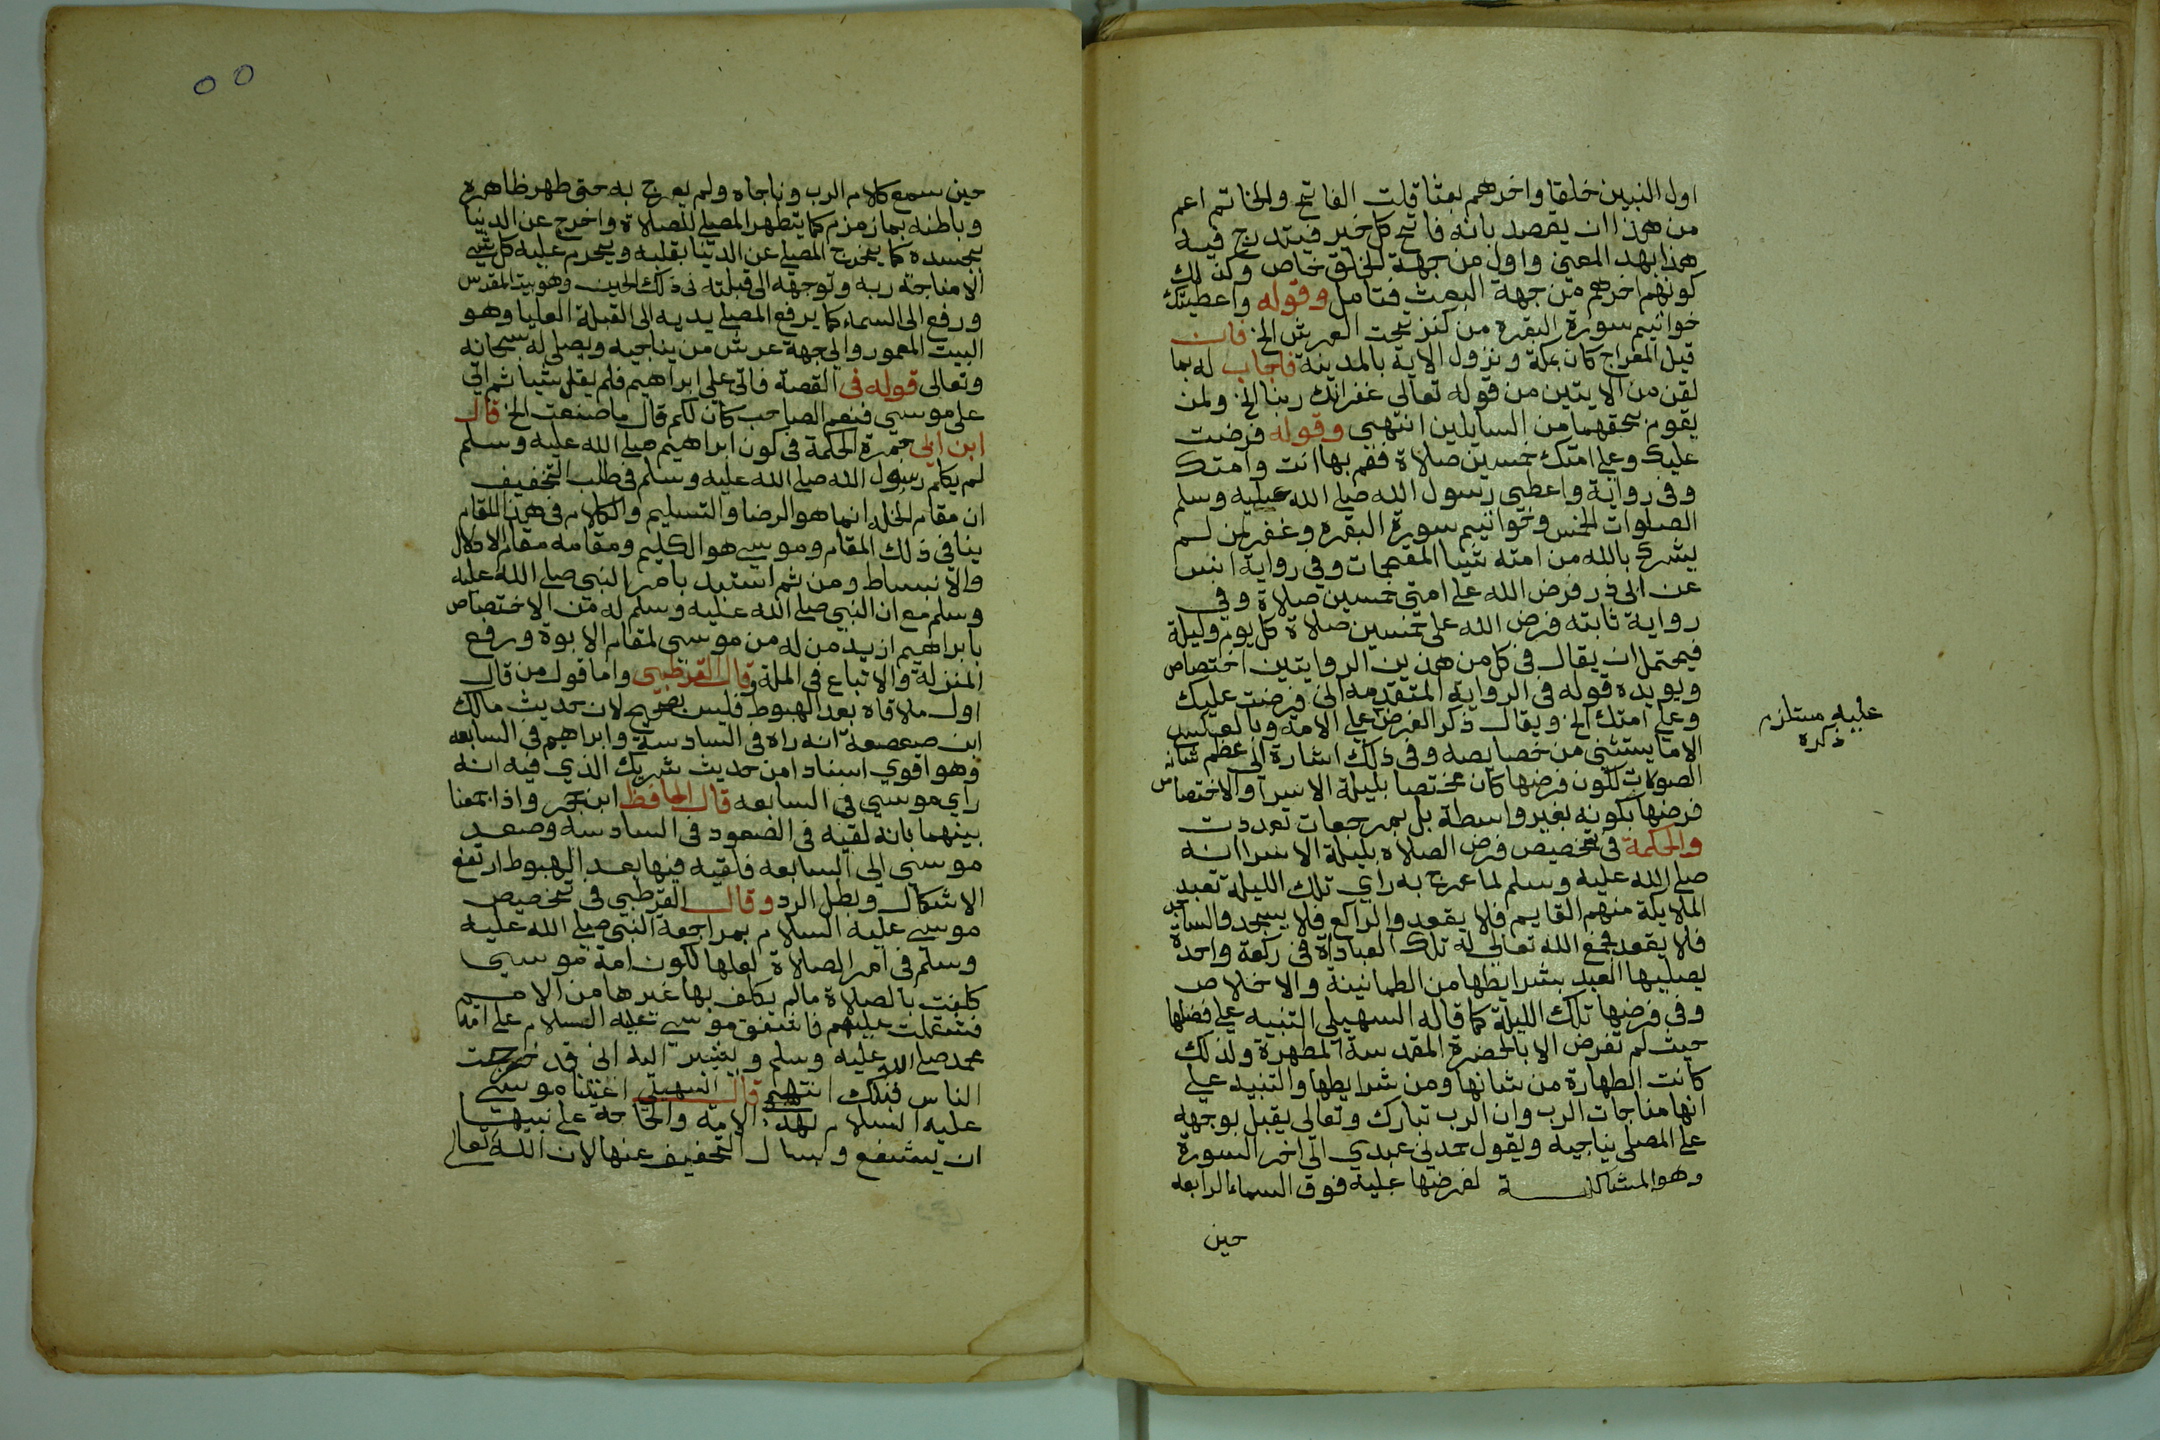 اول النبين خلقا واخرهم بعثا قلت الفاتح والخاتم اعم
من هذا ان يقصد بانه فاتح كل خير فيندرج فيه
هذا بهد المعنى واول من جهة الخلق خاص وكذلك
كونهم اخرهم من جهة البعث فتامل وقوله واعطيتك
خواتيم سورة البقره من كنز تحت العرش الخ فان
قيل المعراج كان بمكة ونزول الاية بالمدينة فاجاب له بما
لقن من الايتين من قوله تعالى غفرانك ربنا الخ ولمن
يقوم بحقهما من السايلين انتهى وقوله فرضت
عليك وعلى امتك خمسين صلاة فقم بها انت وامتك
وفى رواية واعطى رسول الله صلى الله عليه وسلم
الصلوات الخمس وخواتيم سورة البقره وغفر لمن لم
يشرك بالله من امته شيا المقحمات وفى رواية انس
عن ابى ذر فرض الله على امتى خمسين صلاة وفى
رواية ثابته فرض الله على خمسين صلاة كل يوم وليلة
فيحتمل ان يقال فى كل من هذين الروايتين اختصاص
ويويده قوله فى الرواية المتقدمه الى فرضت عليك
وعلى امتك الخ ويقال ذكر الفرض على الامه وبالعكس
عليه مستلزم
ذكره
الا ما يستثنى من خصايصه وفى ذلك اشارة الى عظم شانه
الصوات لكون فرضها كان مختصا بليلة الاسرا والاختصاص
فرضها بكونه بغير واسطة بل بمرجعات تعددت
والحكمة فى تخصيص فرض الصلاه بليلة الاسرا انه
صلى الله عليه وسلم لما عرج به راى تلك الليلة تعبد
الملايكة منهم القايم فلا يقعد والراكع فلا يسجد والساجد
فلا يقعد فجمع الله تعالى له تلك العباداة فى ركعة واحدة
يصليها العبد بشرايطها من الطمانينة والاخلاص
وفى فرضها تلك الليلة كما قاله السهيلى التنبيه على فضلها
حيث لم تفرض الا بالحضرة المقدسة المطهرة ولذلك
كانت الطهارة من شانها ومن شرايطها والتنبيد على
انها مناجات الرب وان الرب تبارك وتعالى يقبل بوجهه
على المصلى يناجيه ويقول حمدنى عبدي الى اخر السورة
وهو المشاكلة لفرضها عليه فوق السماء الرابعه
حين
حين سمع كلام الرب وناجاه ولم يعرج به حتى طهر ظاهره
وباطنه بماء زمزم كما يتطهر المصلى للصلاة واخرج عن الدنيا
بجسده كما يخرج المصلى عن الدنيا بقلبه ويحرم عليه كل شى
الا مناجة ربه وتوجهه الى قبلته فى ذلك الحين وهو بيت المقدس
ورفع الى السماء كما يرفع المصلى يديه الى القبلة العليا وهو
البيت المعمور والى جهة عرش من يناجيه ويصلى له سبحانه
وتعالى قوله فى القصة فاتى على ابراهيم فلم يقل شيا ثم اتى
على موسى فنعم الصاحب كان لكم قال ما صنعت الخ قال
ابن ابى جمرة الحكمة فى كون ابراهيم صلى الله عليه وسلم
لم يكلم رسول الله صلى الله عليه وسلم فى طلب التخفيف
ان مقام الخله انما هو الرضا والتسليم والكلام فى هذا المقام
ينافى ذلك المقام وموسى هو الكليم ومقامه مقام الادلال
والانبساط ومن ثم استبد بامر النبى صلى الله عليه
وسلم مع ان النبى صلى الله عليه وسلم له من الاختصاص
بابراهيم ازيد من له من موسى لمقام الابوة ورفع
المنزلة والاتباع فى الملة وقال القرطبى واما قول من قال
اول ملاقاه بعد الهبوط فليس بصحيح لان حديث مالك
ابن صعصعة انه راه فى السادسة وابراهيم فى السابعه
وهو اقوي اسنادا من حديث شريك الذي فيه انه
راى موسى فى السابعه قال الحافظ ابن حجر واذا جمعنا
بينهما بانه لقيه فى الصعود فى السادسة وصعد
موسى الى السابعه فلقيه فيها بعد الهبوط ارتفع
الاشكال وبطل الرد وقال القرطبى فى تخصيص
موسى عليه السلام بمراجعة النبى صلى الله عليه
وسلم فى امر الصلاة لعلها لكون امة موسى
كلفت بالصلاة مالم يكلف بها غيرها من الامم
فثقلت عليهم فاشفق موسى عليه السلام على امة
محمد صلى الله عليه وسلم ويشير اليه انى قد خرجت
الناس قبلك انتهى قال السهيلى اعتنا موسى
عليه السلام بهذه الامة والحاحه على نبيها
ان يشفع ويسال التخفيف عنها لان الله تعالى